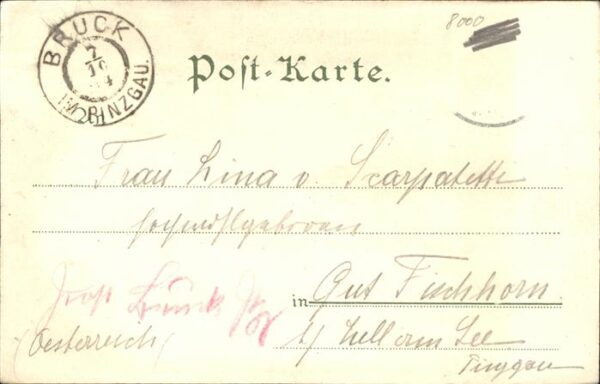 8000
BRUCK
7
10
IM PINZGAU.
Post-Karte.
Frau Lina v. Scarpatetti
Hochwohlgeboren
Post Bruck
in Gut Fischhorn
(Oesterreich)
b/ Zell am See
Pinzgau